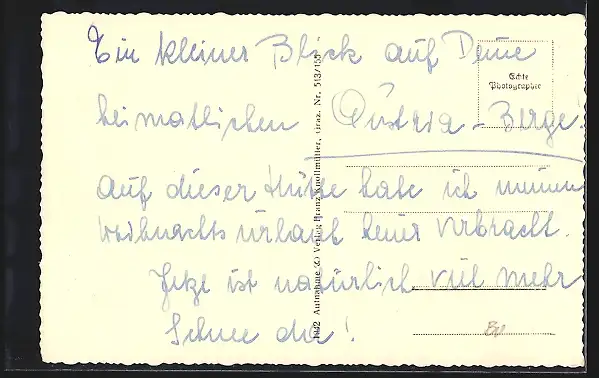 Ein kleiner Blick auf Deine
heimatlichen Austria-Berge!
Auf dieser Hütte habe ich meinen
Weihnachtsurlaub heuer verbracht.
Jetzt ist natürlich viel mehr
Schnee da!
Echte
Photographie
Aufnahme (C) Verlag Franz Knollmüller, Graz. Nr. 513/155